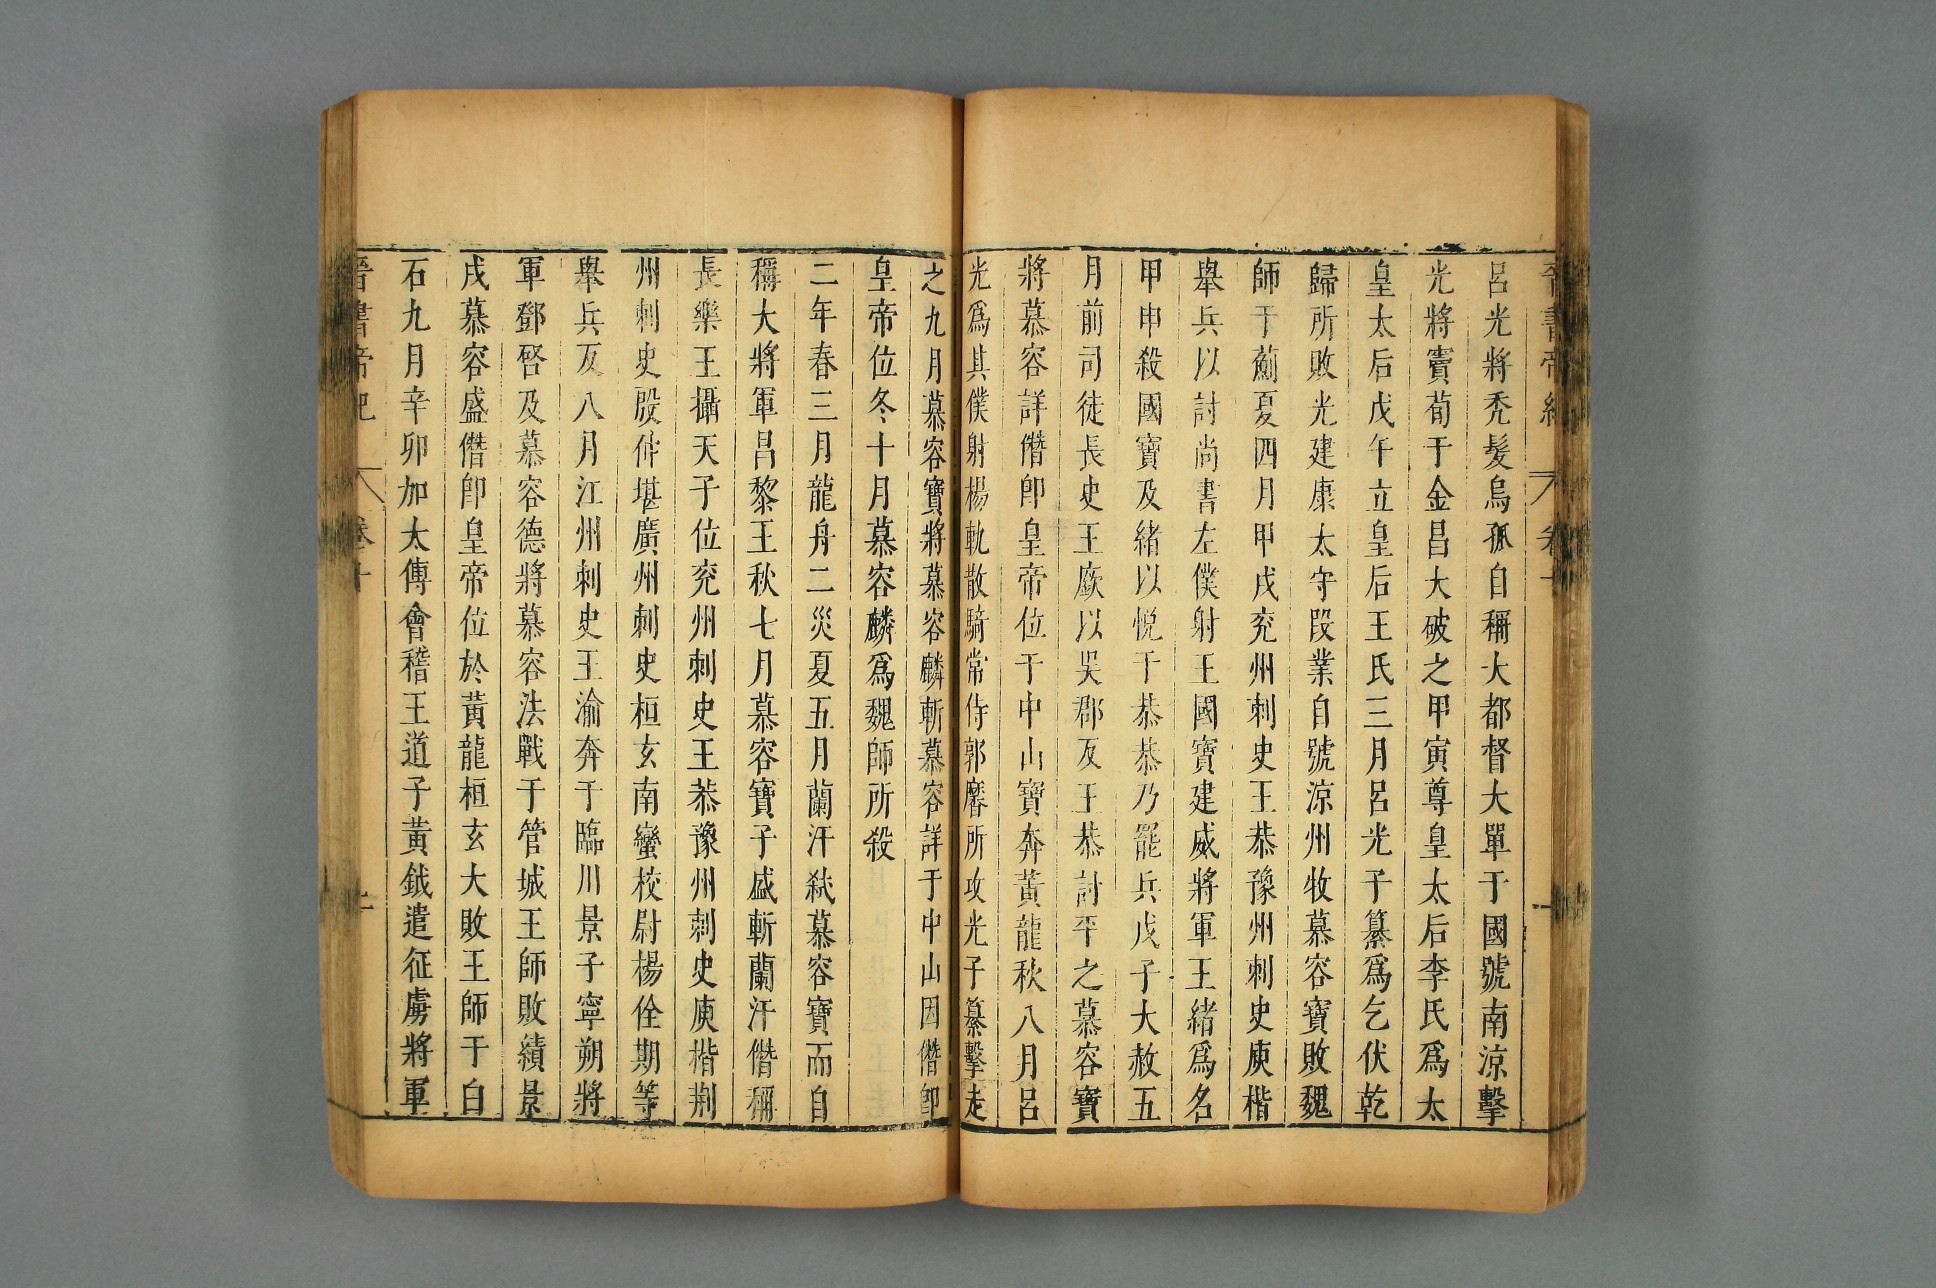 呂光將禿髮烏孤自稱大都督大單于國號南涼擊
光將竇荀于金昌大破之甲寅尊皇太后李氏爲太
皇太后戊午立皇后王氏三月呂光子纂爲乞伏乾
歸所敗光建康太守段業自號涼州牧慕容寶敗魏
師于薊夏四月甲戌兖州刺史王恭豫州刺史庾楷
舉兵以討尚書左僕射王國寶建威將軍王緒爲名
甲申殺國寶及緒以悅于恭恭乃罷兵戊子大赦五
月前司徒長史王廞以吳郡反王恭討平之慕容寶
將慕容詳僭卽皇帝位于中山寶奔黃龍秋八月呂
光爲其僕射楊軌散騎常侍郭黁所攻光子纂擊走
之九月慕容寶將慕容麟斬慕容詳于中山因僭卽
皇帝位冬十月慕容麟爲魏師所殺
二年春三月龍舟二災夏五月蘭汗弑慕容寶而自
稱大將軍昌黎王秋七月慕容寶子盛斬蘭汗僭稱
長樂王攝天子位兖州刺史王恭豫州刺史庾楷荆
州刺史殷仲堪廣州刺史桓玄南蠻校尉楊佺期等
舉兵反八月江州刺史王渝奔于臨川景子寧朔將
軍鄧啓及慕容德將慕容法戰于管城王師敗績景
戌慕容盛僭卽皇帝位於黃龍桓玄大敗王師于白
石九月辛卯加太傅會稽王道子黃鉞遣征虜將軍
晉書帝紀 卷十 二